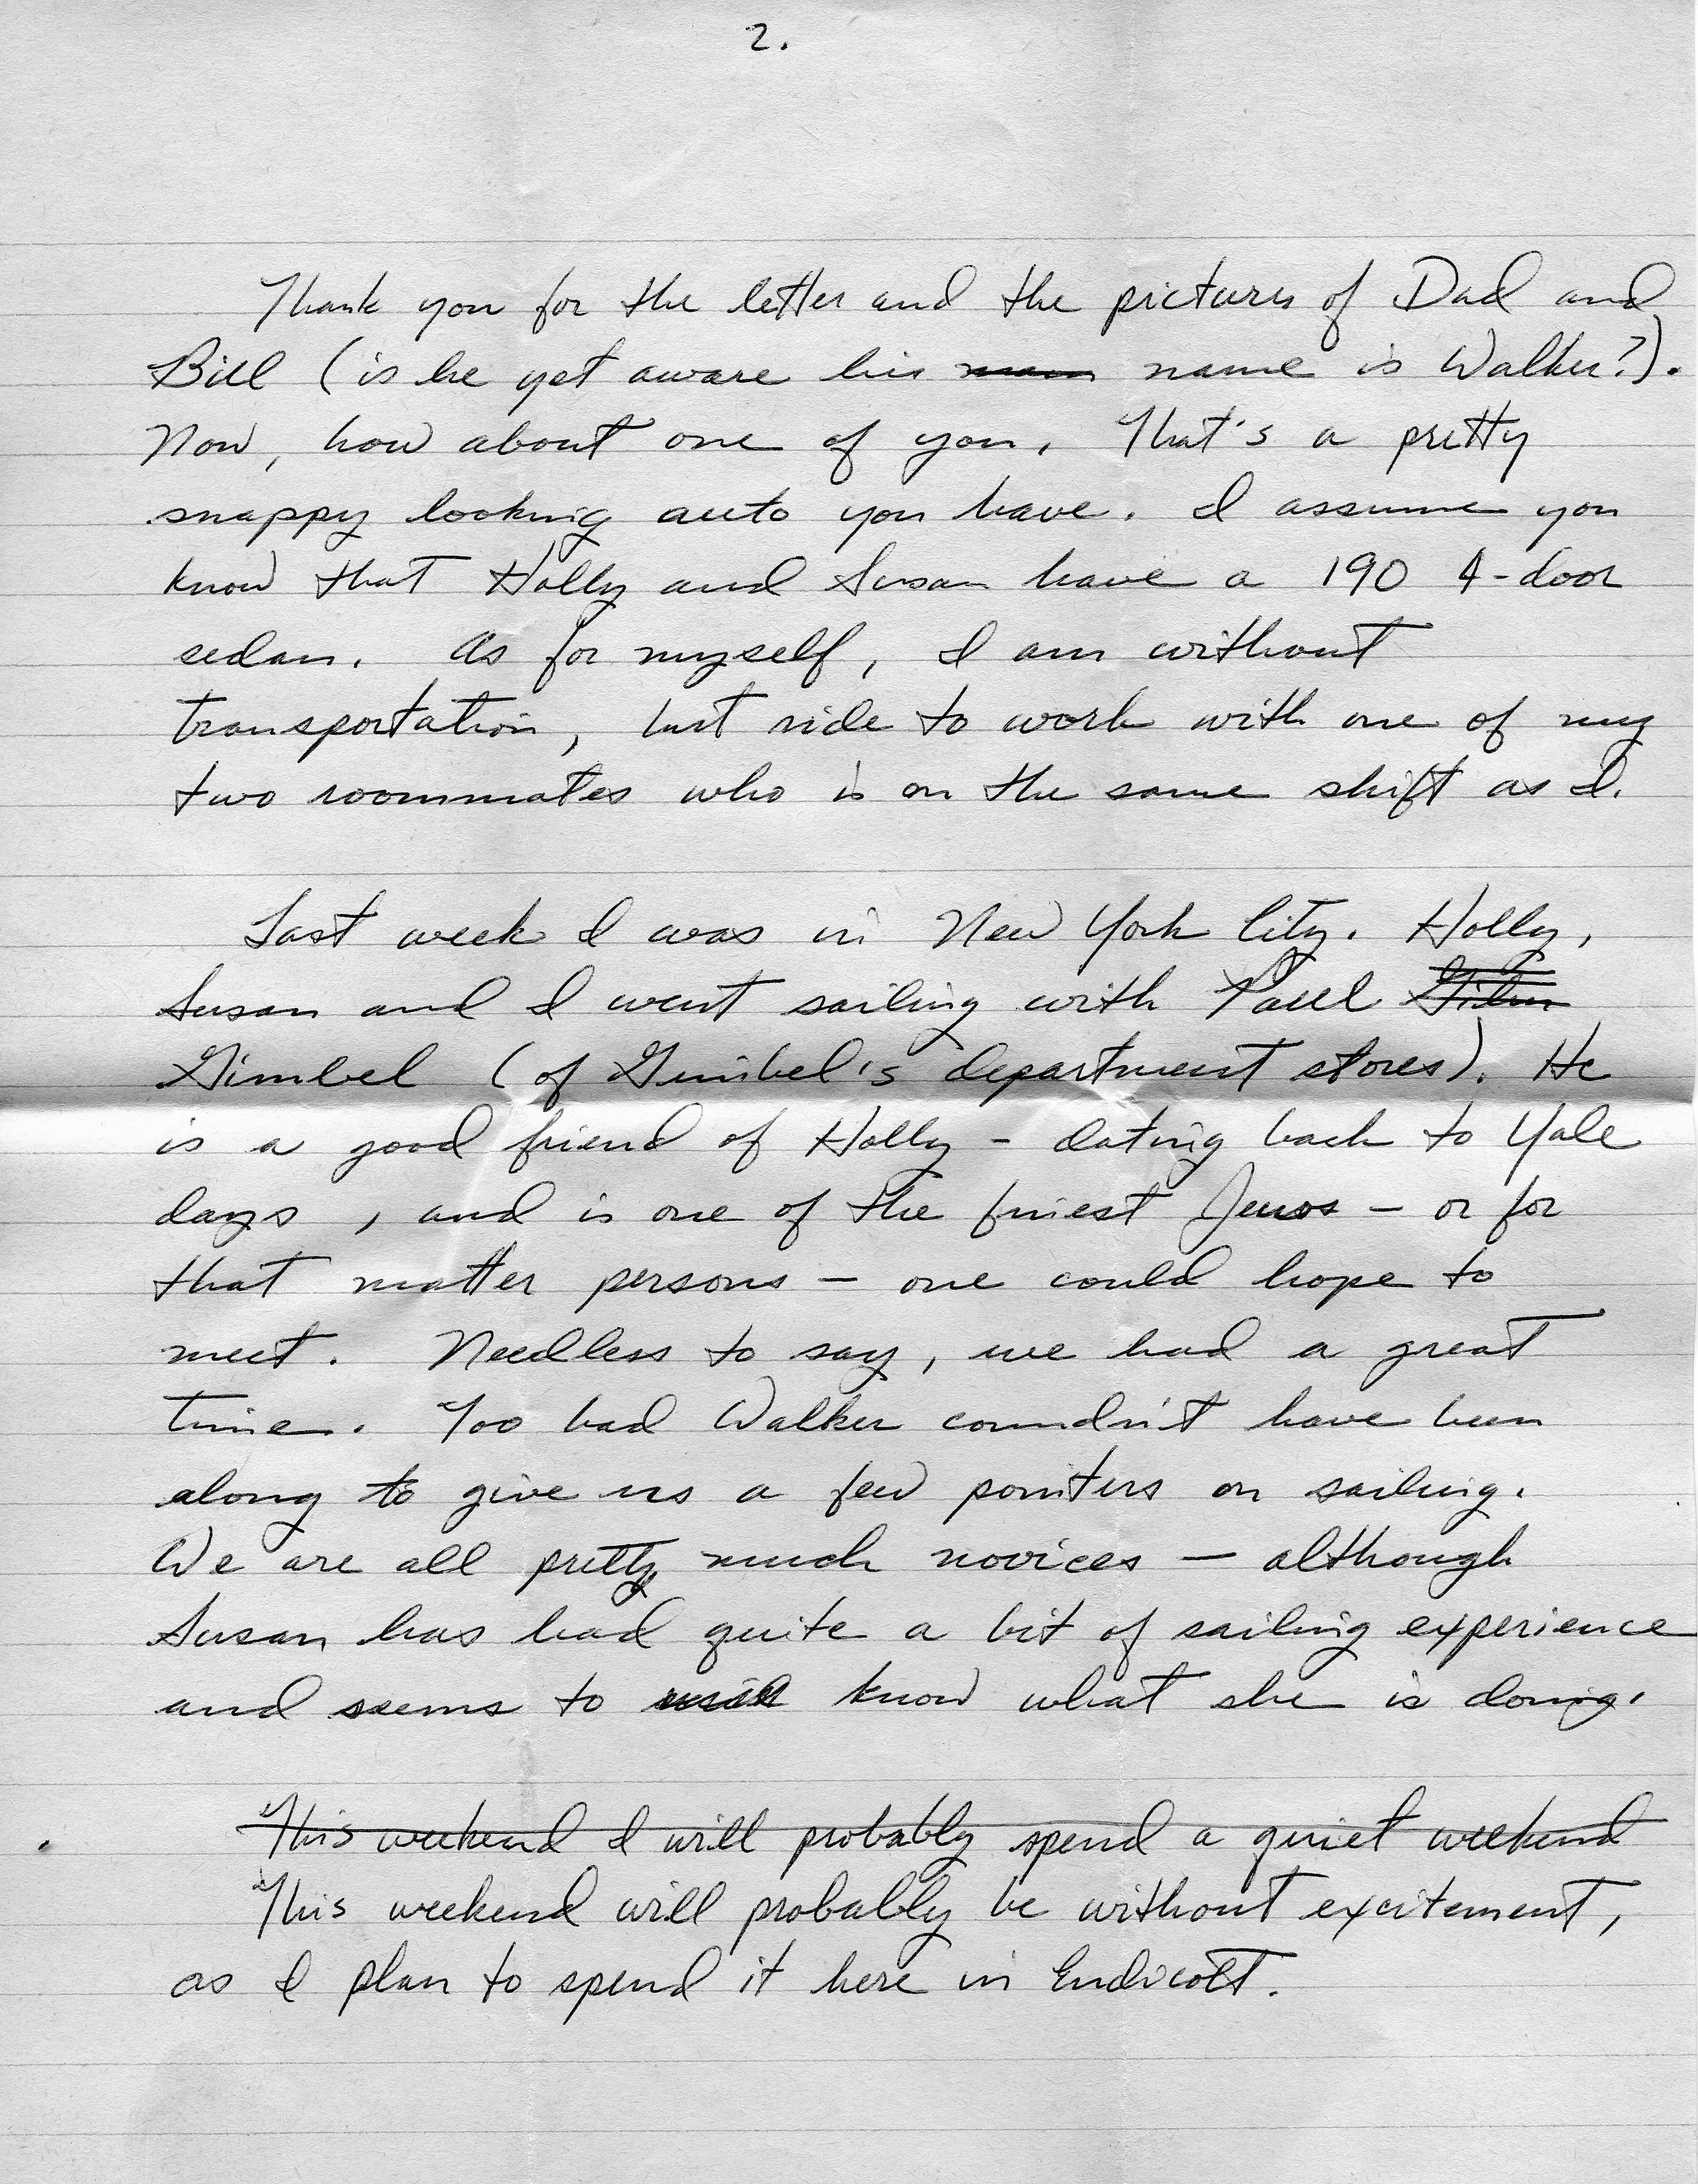 2.
Thank you for the letter and the pictures of Dad and
Bill (is he yet aware his name is Walker?).
Now, how about one of you. That's a pretty
snappy looking auto you have. I assume you
know that Holly and Susan have a 190 4-door
sedan. As for myself, I am without
transportation, but ride to work with one of my
two roommates who is on the same shift as I.
Last week I was in New York City. Holly,
Susan and I went sailing with Paul
Gimbel (of Gimbel's department stores). He
is a good friend of Holly - dating back to Yale
days, and is one of the finest Jews - or for
that matter persons - one could hope to
meet. Needless to say, we had a great
time. Too bad Walker coundn't have been
along to give us a few pointers on sailing.
We are all pretty much novices - although
Susan has had quite a bit of sailing experience
and seems to know what she is doing.
This weekend I will probably spend a quiet weekend
This weekend will probably be without excitement,
as I plan to spend it here in Endicott.